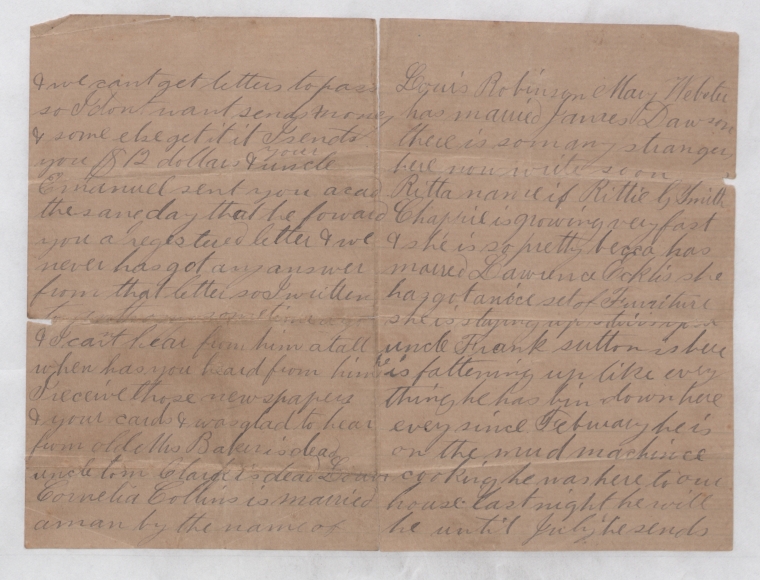 & we cant get letters to pass
so I dont want send money
& some else get it I sends
you $ 12 dollars & your uncle
Emanuel sent you a cad
the same day that he foward
you a regestued letter & we
never has got any answer
from that letter so I written
& I can't hear from him atall
when has you heard from him
I receive those newspapers
& your cards & was glad to hear
from old Ms Baker is dead
uncle tom Clark is dead
Cornelia Collins is married
a man by the name of
Louis Robinson Mary Webster
has married James Dawson
there is so many stranger
here now write soon
Ritta name is Rittie G Smith
Chaprie is growing very fast
& she is so pretty becca has
marred Lawrence she
has got a nice set of Furniture
she is staying up stairs
uncle Frank Sutton is here
he is fattening up like every
thing he has bin down here
every since February he is
on the mud machince
cooking he was here to our
house last night he will
be until July he sends